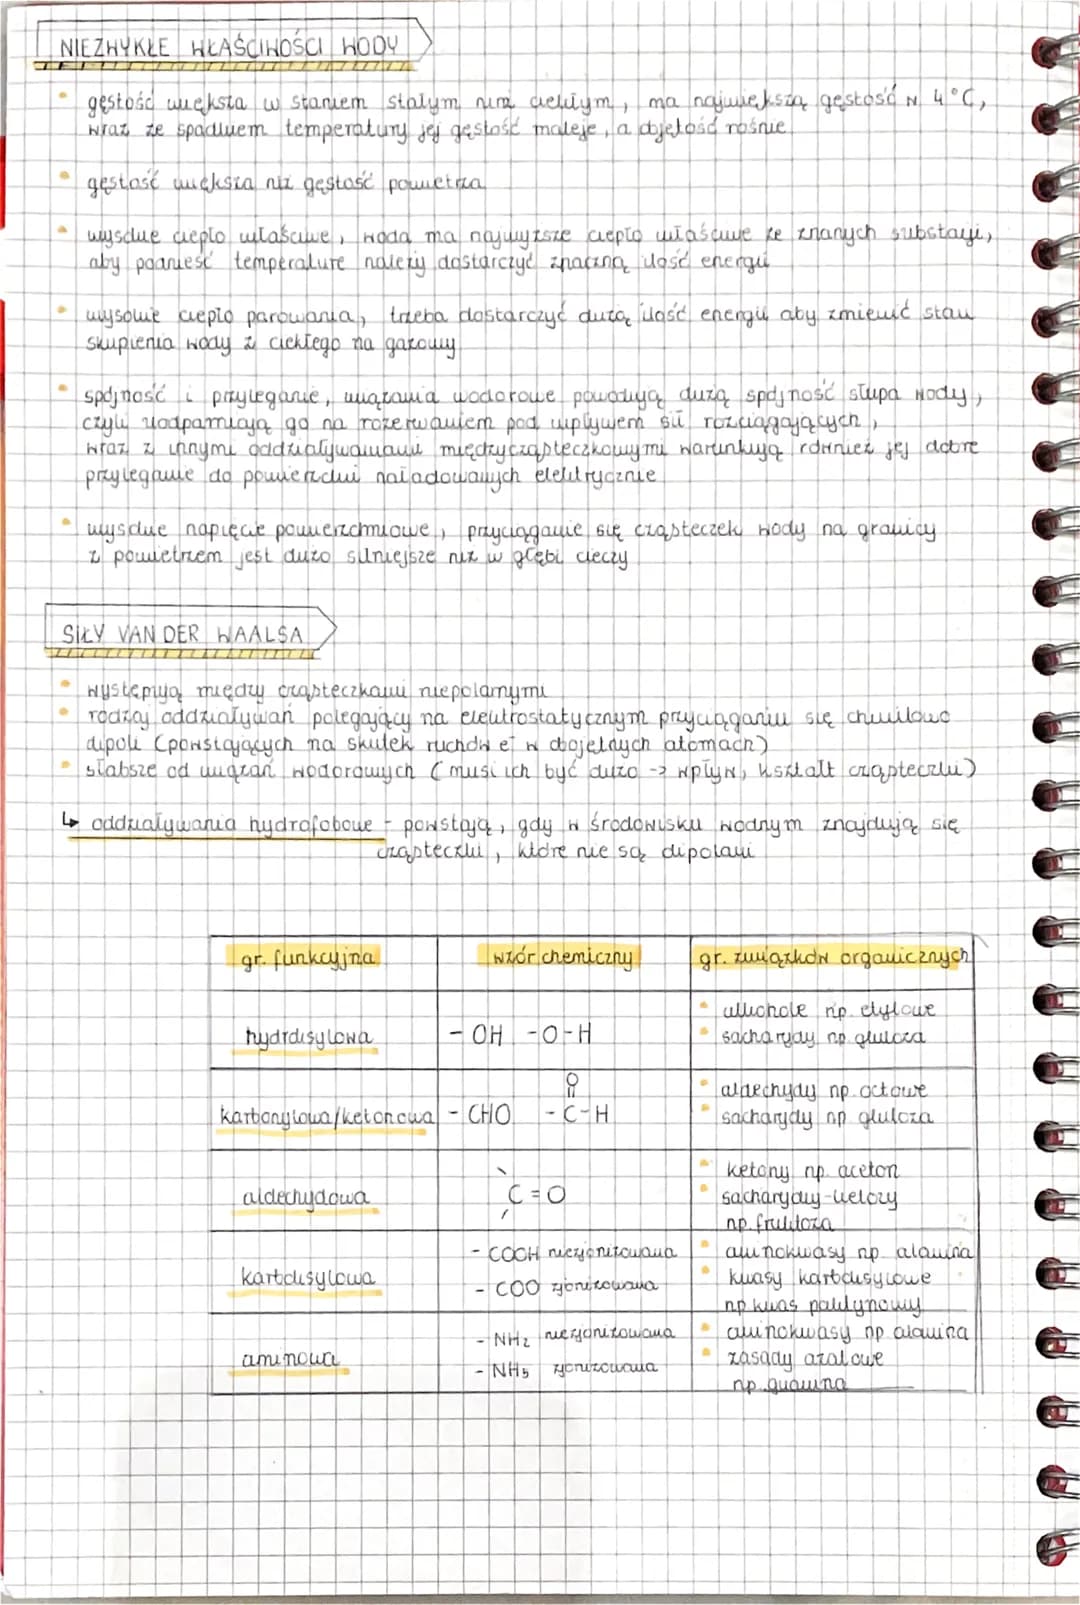 NIEZWYKŁE WŁAŚCIWOŚCI WODY
• gęstość większa w staniem stałym niż ciekłym, ma największą gęstość w 4°C,
wraz ze spadkiem temperatury jej gęstość maleje, a objętość rośnie
• gęstość większa niż gęstość powietrza
• wysokie ciepło właściwe, woda ma najwyższe ciepło właściwe ze znanych substancji,
aby podnieść temperaturę należy dostarczyć znaczną ilość energii
• wysokie ciepło parowania, trzeba dostarczyć dużą ilość energii aby zmienić stan
skupienia wody z ciekłego na gazowy
• spójność i przyleganie, wiązania wodorowe powodują dużą spójność słupa wody,
czyli uodparniają go na rozerwaniem pod wpływem sił rozciągających,
wraz z innymi oddziaływaniami międzycząsteczkowymi warunkują również jej dobre
przyleganie do powierzchni naładowanych elektrycznie
• wysokie napięcie powierzchniowe, przyciąganie się cząsteczek wody na granicy
z powietrzem jest dużo silniejsze niż w głębi cieczy
SIŁY VAN DER WAALSA
• występują między cząsteczkami niepolarnymi
• rodzaj oddziaływań polegający na elektrostatycznym przyciąganiu się chwilowo
dipoli (powstających na skutek ruchów e⁻ w obojętnych atomach)
• słabsze od wiązań wodorowych (musi ich być dużo -> wpływ, kształt cząsteczki)
↳ oddziaływania hydrofobowe - powstają, gdy w środowisku wodnym znajdują się
cząsteczki, które nie są dipolami
gr. funkcyjna wzór chemiczny gr. związków organicznych
hydroksylowa - OH -O-H • alkohole np. etylowe
• sacharydy np. glukoza
karbonylowa/ketonowa - CHO O
=
-C-H • aldechydy np. octowe
• sacharydy np glukoza
aldechydowa C=O • ketony np. aceton
• sacharydy-ketozy
np. fruktoza
karboksylowa - COOH niezjonizowana • aminokwasy np. alanina
- COO zjonizowana • kwasy karboksylowe
np kwas palmynowy
aminowa - NH₂ niezjonizowana • aminokwasy np alanina
- NH₃ zjonizowana • zasady azotowe
np. guanina